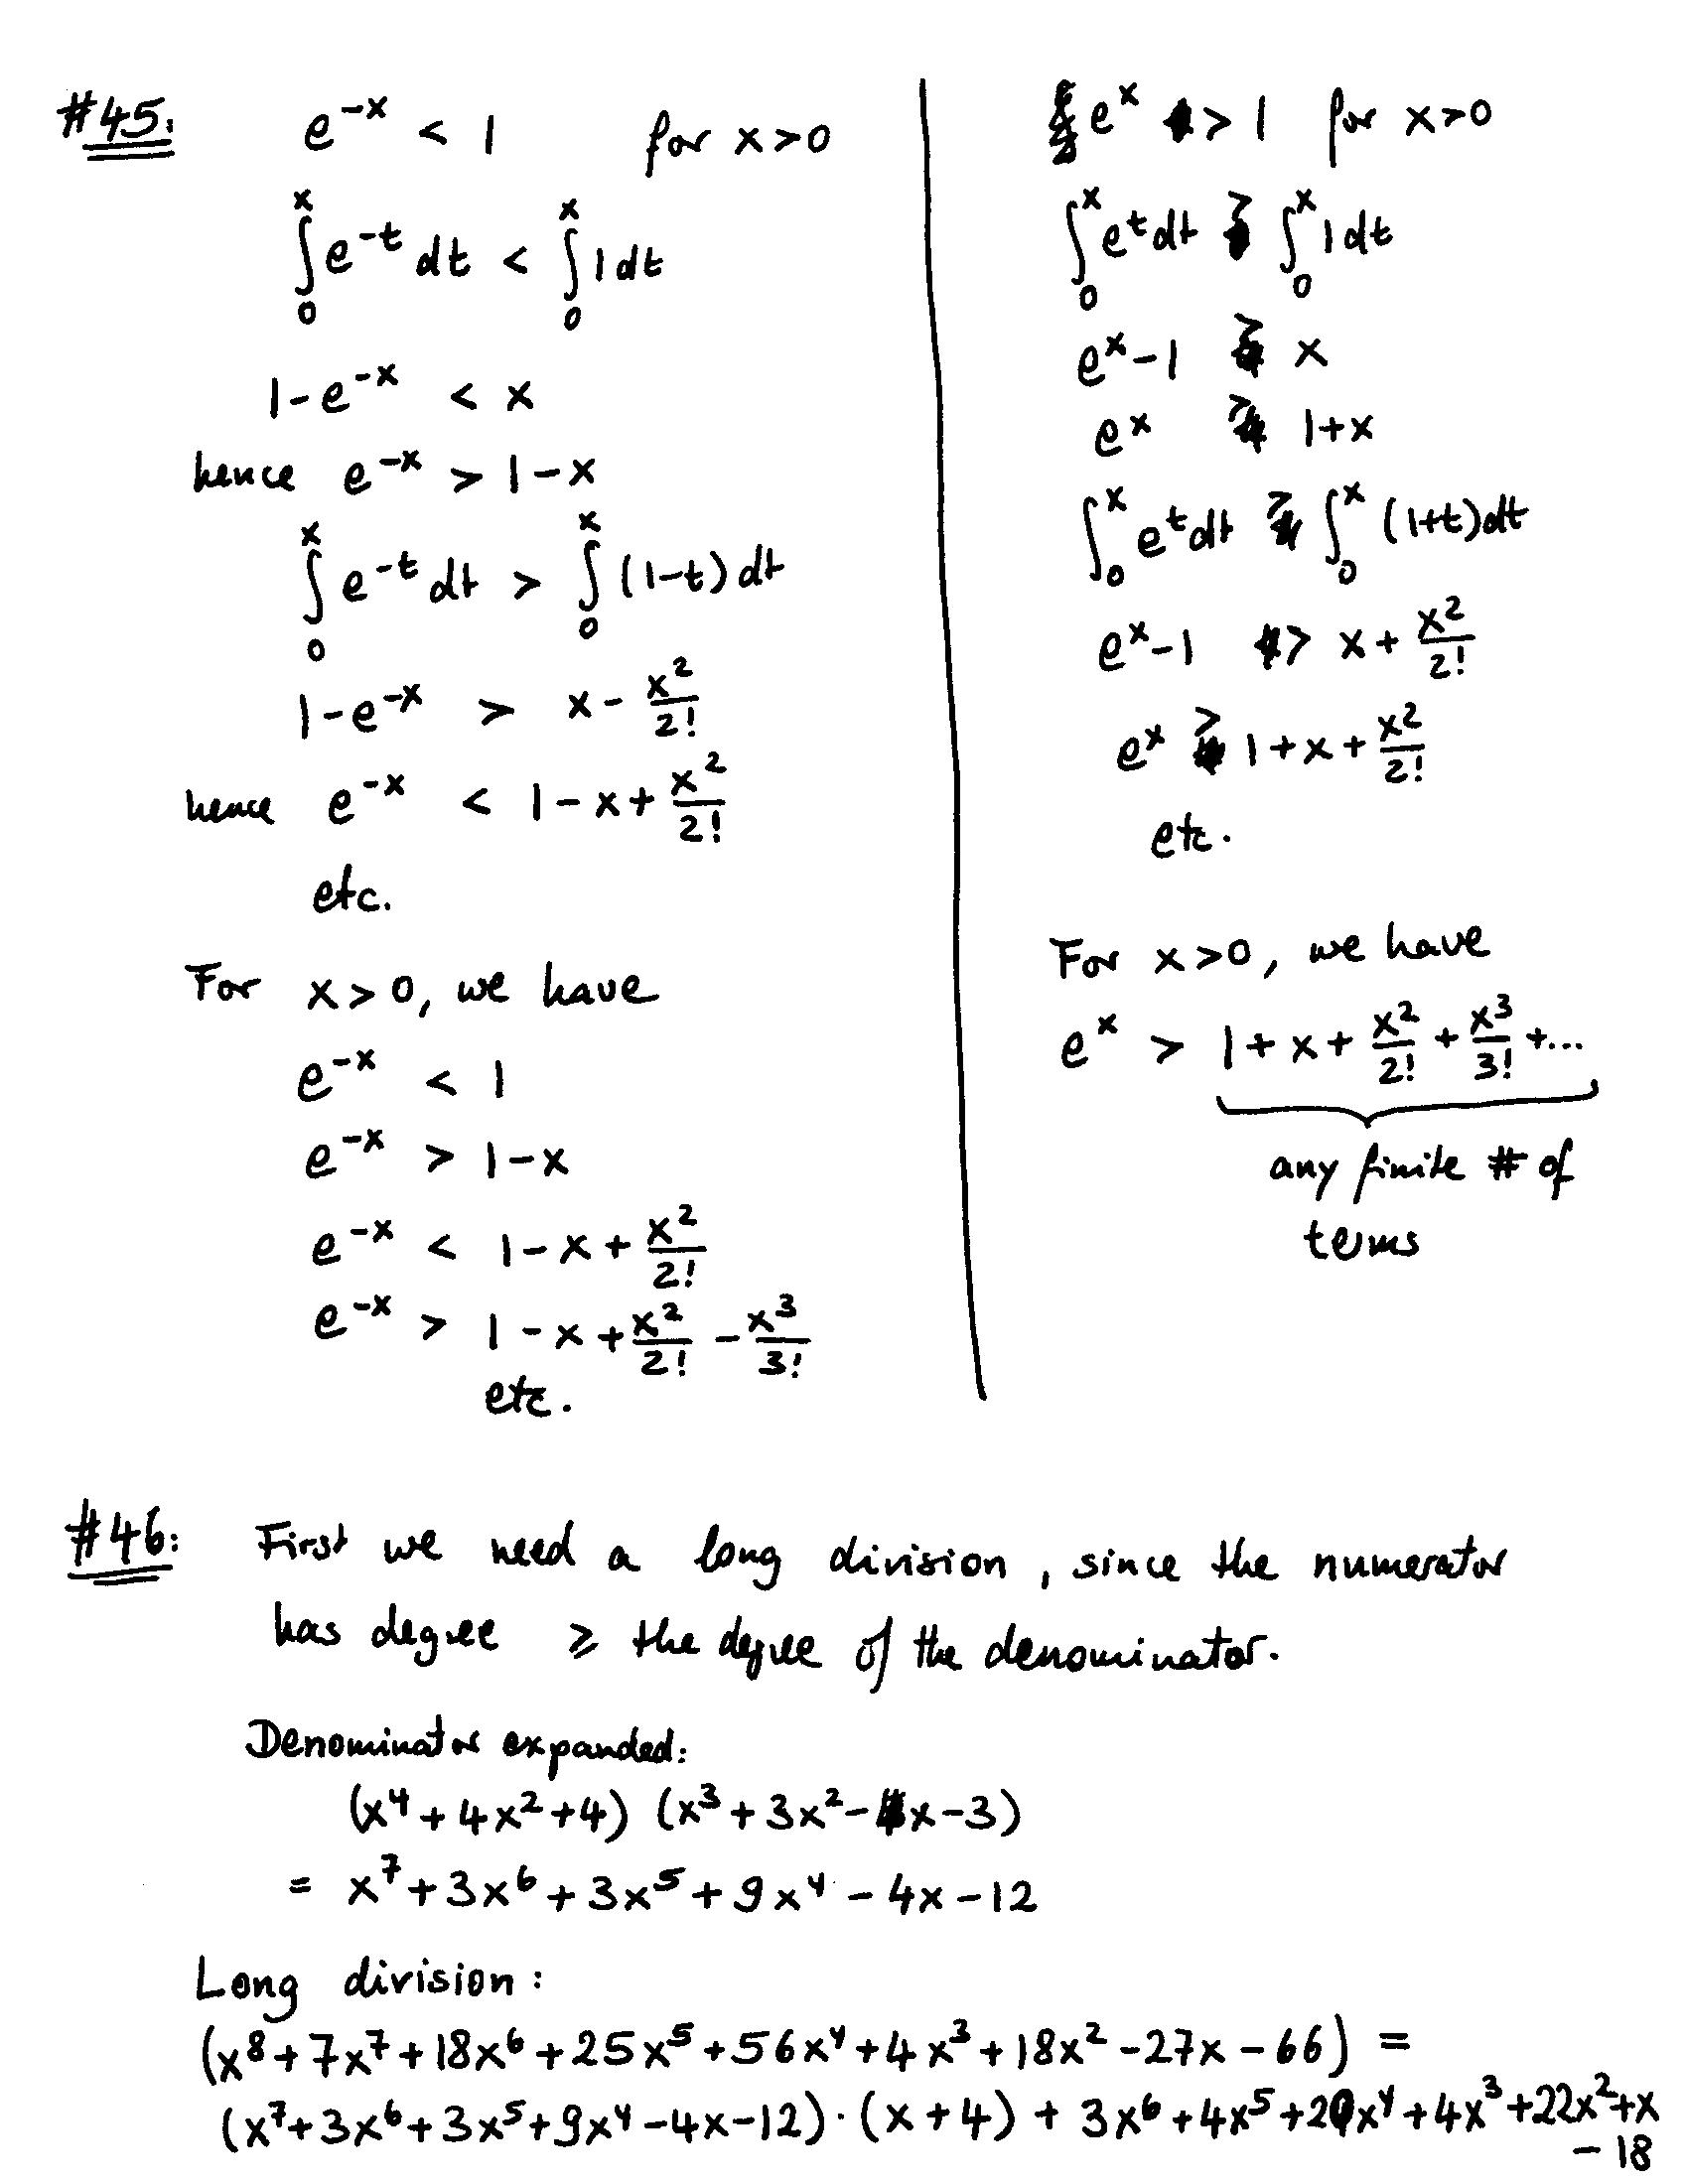 #45:
e^{-x} < 1 for x>0
∫_0^x e^{-t} dt < ∫_0^x 1 dt
1-e^{-x} < x
hence e^{-x} > 1-x
∫_0^x e^{-t} dt > ∫_0^x (1-t) dt
1-e^{-x} > x - x^2/2!
hence e^{-x} < 1-x+ x^2/2!
etc.
For x>0, we have
e^{-x} < 1
e^{-x} > 1-x
e^{-x} < 1-x+ x^2/2!
e^{-x} > 1-x+ x^2/2! - x^3/3!
etc.
e^x > 1 for x>0
∫_0^x e^t dt > ∫_0^x 1 dt
e^x-1 > x
e^x > 1+x
∫_0^x e^t dt > ∫_0^x (1+t)dt
e^x-1 > x+ x^2/2!
e^x > 1+x+ x^2/2!
etc.
For x>0, we have
e^x > 1+x+ x^2/2! + x^3/3! +...
any finite # of
terms
#46:
First we need a long division, since the numerator
has degree ≥ the degree of the denominator.
Denominator expanded:
(x^4+4x^2+4) (x^3+3x^2-x-3)
= x^7+3x^6+3x^5+9x^4-4x-12
Long division:
(x^8+7x^7+18x^6+25x^5+56x^4+4x^3+18x^2-27x-66) =
(x^7+3x^6+3x^5+9x^4-4x-12)·(x+4) + 3x^6+4x^5+20x^4+4x^3+22x^2+x
-18